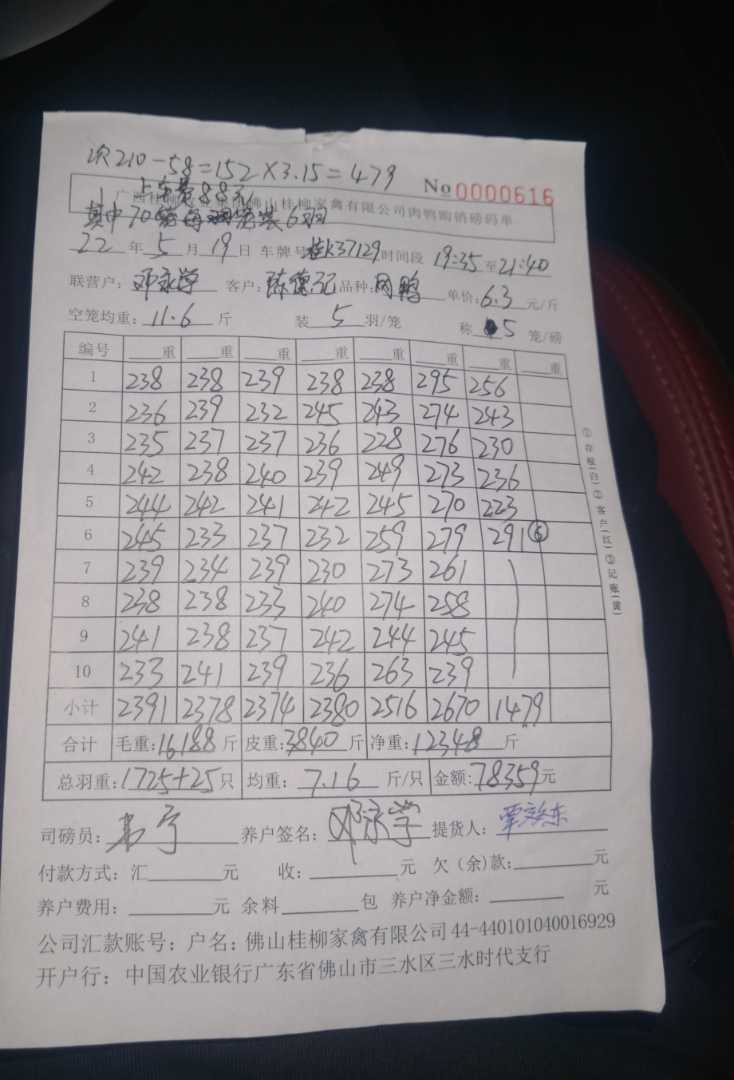 次210-58=152×3.15=479
No 0000616
佛山桂柳家禽有限公司肉鸭购销磅码单
其中70
22年5月19日 车牌号:桂K37129 时间段 19:35至21:40
联营户:邓永学 客户:陈德记 品种:肉鸭 单价:6.3元/斤
空笼均重:11.6斤 装5羽/笼 称5笼/磅
编号 重 重 重 重 重 重 重 重
1 238 238 239 238 238 295 256
2 236 239 232 245 243 274 243
3 235 237 237 236 228 276 230
4 242 238 240 239 249 273 236
5 244 242 241 242 245 270 223
6 245 233 237 232 259 279 291 ⑥
7 239 234 239 230 273 261
8 238 238 233 240 274 258
9 241 238 237 242 244 245
10 233 241 239 236 263 239
小计 2391 2378 2374 2380 2516 2670 1479
合计 毛重:16188斤 皮重:3840斤 净重:12348斤
总羽重:1725+25只 均重:7.16斤/只 金额:78359元
司磅员: 养户签名:邓永学 提货人:
付款方式:汇 元 收: 元 欠(余)款: 元
养户费用: 元 余料 包 养户净金额: 元
公司汇款账号:户名:佛山桂柳家禽有限公司44-440101040016929
开户行:中国农业银行广东省佛山市三水区三水时代支行
①存根(白)②客户(红)③记账(黄)